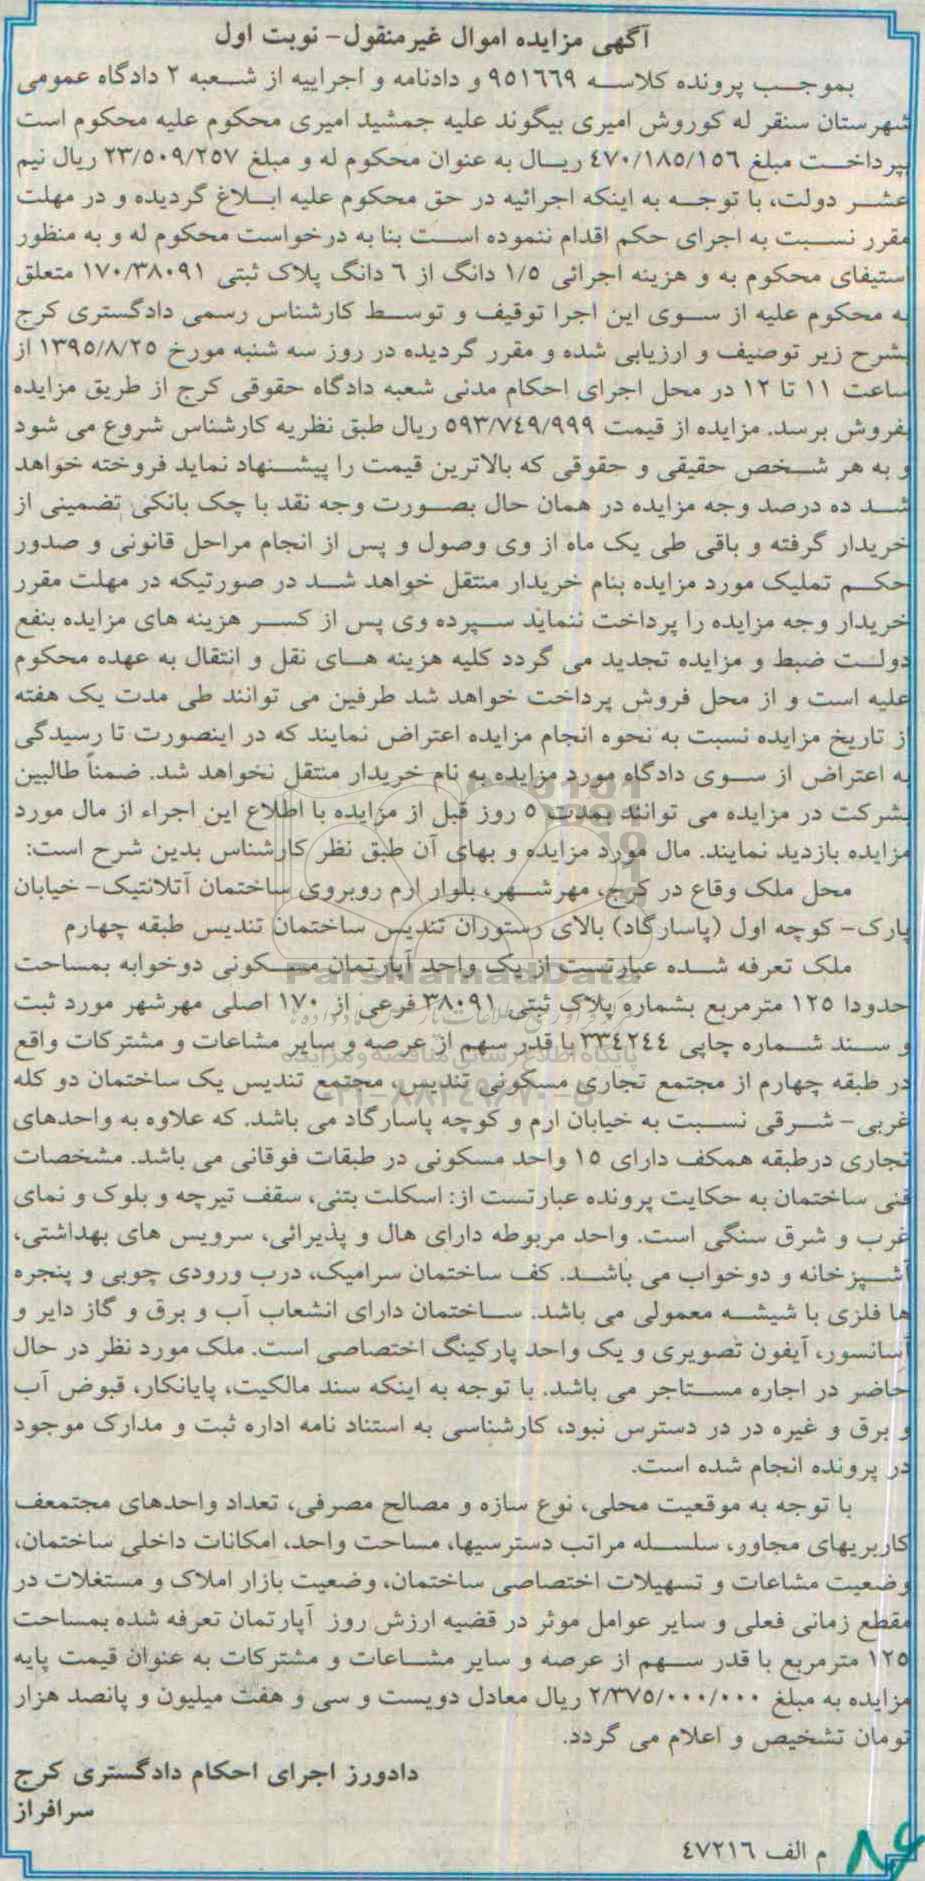 آگهی مزایده اموال غیرمنقول- نوبت اول
بموجب پرونده کلاسه ۹۵۱۶۶۹ و دادنامه و اجراییه از شعبه ۲ دادگاه عمومی
شهرستان سنقر له کوروش امیری بیگوند علیه جمشید امیری محکوم علیه محکوم است
بپرداخت مبلغ ۴۷۰/۱۸۵/۱۵۶ ریال به عنوان محکوم له و مبلغ ۲۳/۵۰۹/۲۵۷ ریال نیم
عشر دولت، با توجه به اینکه اجرائیه در حق محکوم علیه ابلاغ گردیده و در مهلت
مقرر نسبت به اجرای حکم اقدام ننموده است بنا به درخواست محکوم له و به منظور
استیفای محکوم به و هزینه اجرائی ۱/۵ دانگ از ۶ دانگ پلاک ثبتی ۱۷۰/۳۸۰۹۱ متعلق
به محکوم علیه از سوی این اجرا توقیف و توسط کارشناس رسمی دادگستری کرج
بشرح زیر توصیف و ارزیابی شده و مقرر گردیده در روز سه شنبه مورخ ۱۳۹۵/۸/۲۵ از
ساعت ۱۱ تا ۱۲ در محل اجرای احکام مدنی شعبه دادگاه حقوقی کرج از طریق مزایده
بفروش برسد. مزایده از قیمت ۵۹۳/۷۴۹/۹۹۹ ریال طبق نظریه کارشناس شروع می شود
و به هر شخص حقیقی و حقوقی که بالاترین قیمت را پیشنهاد نماید فروخته خواهد
شد ده درصد وجه مزایده در همان حال بصورت وجه نقد با چک بانکی تضمینی از
خریدار گرفته و باقی طی یک ماه از وی وصول و پس از انجام مراحل قانونی و صدور
حکم تملیک مورد مزایده بنام خریدار منتقل خواهد شد در صورتیکه در مهلت مقرر
خریدار وجه مزایده را پرداخت ننماید سپرده وی پس از کسر هزینه های مزایده بنفع
دولت ضبط و مزایده تجدید می گردد کلیه هزینه های نقل و انتقال به عهده محکوم
علیه است و از محل فروش پرداخت خواهد شد طرفین می توانند طی مدت یک هفته
از تاریخ مزایده نسبت به نحوه انجام مزایده اعتراض نمایند که در اینصورت تا رسیدگی
به اعتراض از سوی دادگاه مورد مزایده به نام خریدار منتقل نخواهد شد. ضمناً طالبین
بشرکت در مزایده می توانند بمدت ۵ روز قبل از مزایده با اطلاع این اجراء از مال مورد
مزایده بازدید نمایند. مال مورد مزایده و بهای آن طبق نظر کارشناس بدین شرح است:
محل ملک وقاع در کرج، مهرشهر، بلوار ارم روبروی ساختمان آتلانتیک- خیابان
پارک- کوچه اول (پاسارگاد) بالای رستوران تندیس ساختمان تندیس طبقه چهارم
ملک تعرفه شده عبارتست از یک واحد آپارتمان مسکونی دوخوابه بمساحت
ParsNamadData
حدودا ۱۲۵ مترمربع بشماره پلاک ثبتی ۳۸۰۹۱ فرعی از ۱۷۰ اصلی مهرشهر مورد ثبت
و سند شماره چاپی ۳۳۴۲۴۴ با قدر سهم از عرصه و سایر مشاعات و مشترکات واقع
پایگاه اطلاع رسانی مناقصه و مزایده
در طبقه چهارم از مجتمع تجاری مسکونی تندیس، مجتمع تندیس یک ساختمان دو کله
۰۲۱-۸۸۳۴۹۶۷۰-۵
غربی- شرقی نسبت به خیابان ارم و کوچه پاسارگاد می باشد. که علاوه به واحدهای
تجاری درطبقه همکف دارای ۱۵ واحد مسکونی در طبقات فوقانی می باشد. مشخصات
فنی ساختمان به حکایت پرونده عبارتست از: اسکلت بتنی، سقف تیرچه و بلوک و نمای
غرب و شرق سنگی است. واحد مربوطه دارای هال و پذیرائی، سرویس های بهداشتی،
آشپزخانه و دوخواب می باشد. کف ساختمان سرامیک، درب ورودی چوبی و پنجره
ها فلزی با شیشه معمولی می باشد. ساختمان دارای انشعاب آب و برق و گاز دایر و
آسانسور، آیفون تصویری و یک واحد پارکینگ اختصاصی است. ملک مورد نظر در حال
حاضر در اجاره مستاجر می باشد. با توجه به اینکه سند مالکیت، پایانکار، قبوض آب
و برق و غیره در در دسترس نبود، کارشناسی به استناد نامه اداره ثبت و مدارک موجود
در پرونده انجام شده است.
با توجه به موقعیت محلی، نوع سازه و مصالح مصرفی، تعداد واحدهای مجتمعف
کاربریهای مجاور، سلسله مراتب دسترسیها، مساحت واحد، امکانات داخلی ساختمان،
وضعیت مشاعات و تسهیلات اختصاصی ساختمان، وضعیت بازار املاک و مستغلات در
مقطع زمانی فعلی و سایر عوامل موثر در قضیه ارزش روز آپارتمان تعرفه شده بمساحت
۱۲۵ مترمربع با قدر سهم از عرصه و سایر مشاعات و مشترکات به عنوان قیمت پایه
مزایده به مبلغ ۲/۳۷۵/۰۰۰/۰۰۰ ریال معادل دویست و سی و هفت میلیون و پانصد هزار
تومان تشخیص و اعلام می گردد.
دادورز اجرای احکام دادگستری کرج
سرافراز
م الف ۴۷۲۱۶